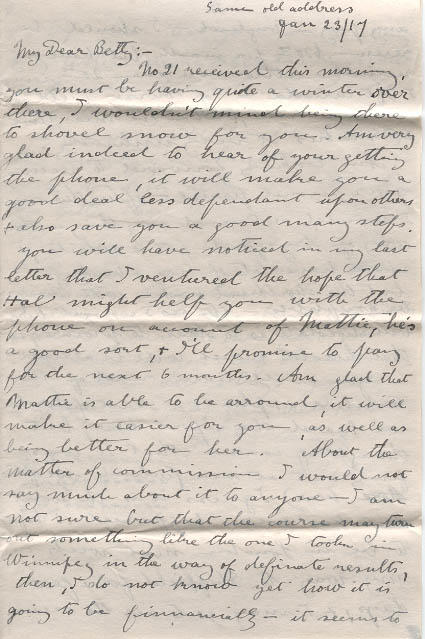 Same old address
Jan 23/17
My Dear Betty:-
No 21 received this morning,
you must be having quite a winter over
there, I wouldn't mind being there
to shovel snow for you. Am very
glad indeed to hear of your getting
the phone, it will make you a
good deal less dependant upon others
+ also save you a good many steps.
you will have noticed in my last
letter that I ventured the hope that
Hal might help you with the
phone on account of Mattie, he's
a good sort, + I'll promise to pay
for the next 6 months. Am glad that
Mattie is able to be arround, it will
make it easier for you as well as
being better for her. About the
matter of commission I would not
say much about it to anyone - I am
not sure but that the course may turn
out something like the one I took in
Winnipeg in the way of definate results,
then, I do not know yet how it is
going to be finnancially - it seems to